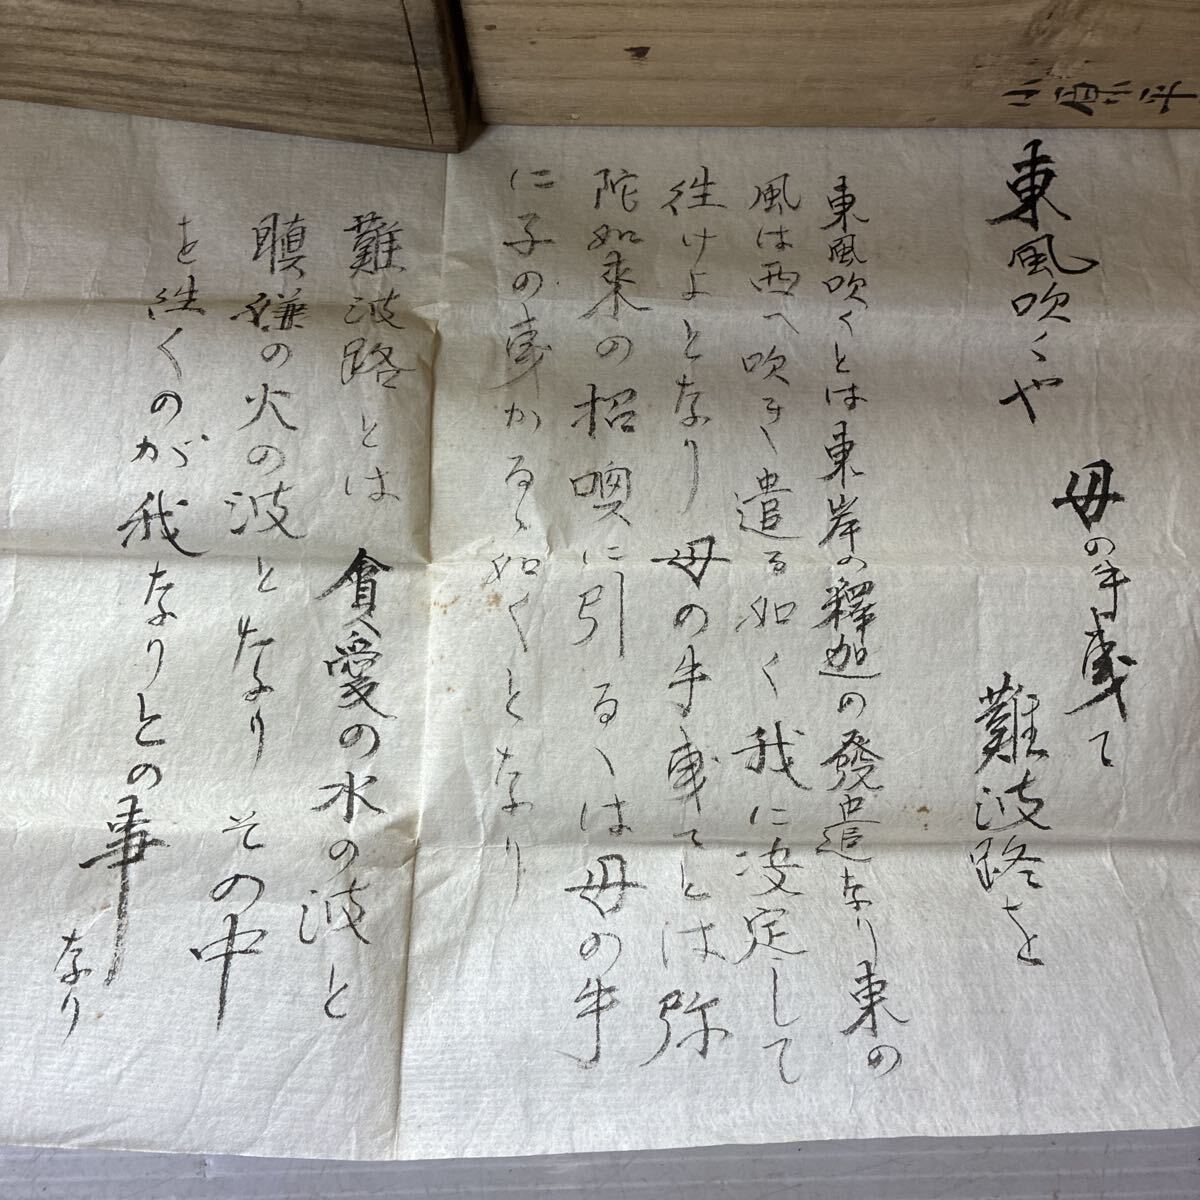 東風吹くや
母の手曳て
難波路を
東風吹くとは東岸の釋迦の發遣なり東の
風は西へ吹き遣る如く我に决定して
徃けよとなり母の手曳てとは弥
陀如来の招喚に引るゝは母の手
に子の曳かるゝ如くとなり
難波路とは貪愛の水の波と
瞋嫌の火の波となりその中
を徃くのが我なりとの事
なり